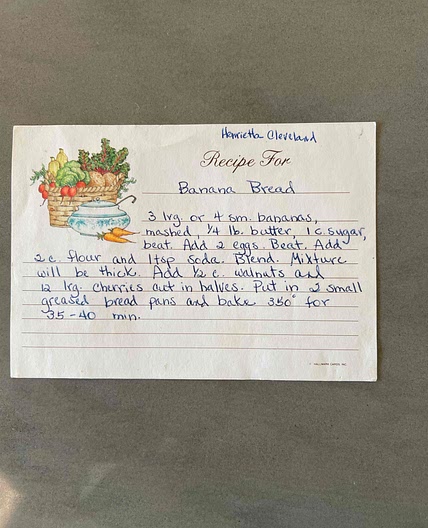 Henrietta Cleveland
Recipe For
Banana Bread
3 lrg or 4 sm. bananas,
mashed, 1/4 lb. butter, 1 c. sugar,
beat. Add 2 eggs. Beat. Add
2 c. flour and 1 tsp soda. Blend. Mixture
will be thick. Add 1/2 c. walnuts and
12 lrg. cherries cut in halves. Put in 2 small
greased bread pans and bake 350° for
35-40 min.
HALLMARK CARDS, INC.